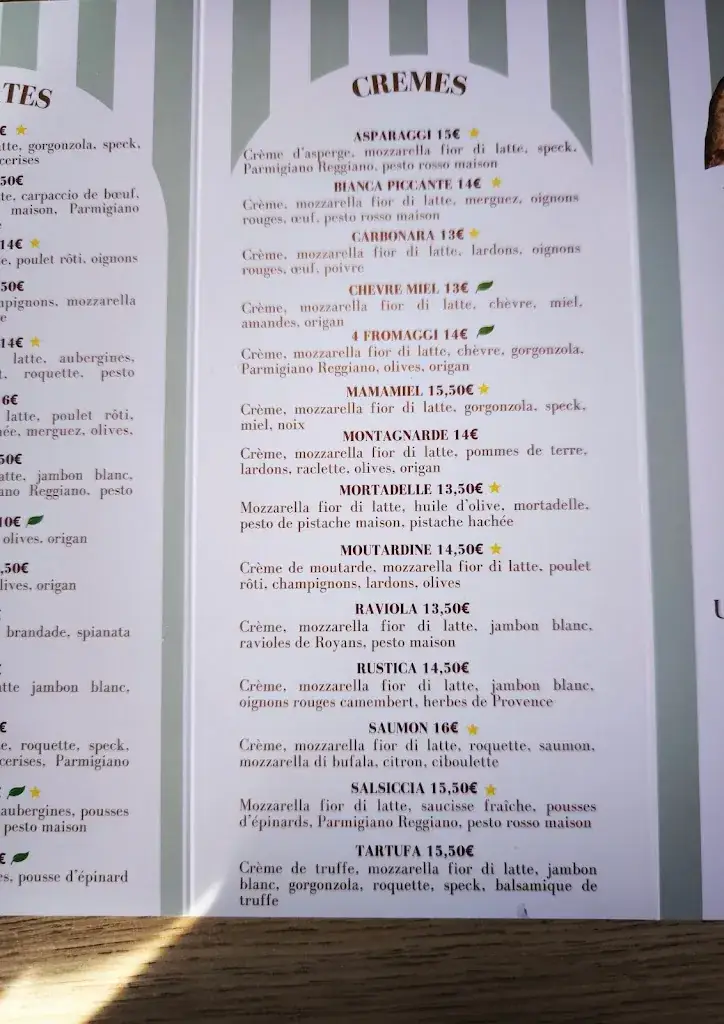 TES
€
tte, gorgonzola, speck,
cerises
50€
te, carpaccio de bœuf,
maison, Parmigiano
e
14€
e, poulet rôti, oignons
50€
mpignons, mozzarella
e
14€
latte, aubergines,
t, roquette, pesto
6€
latte, poulet rôti,
ée, merguez, olives,
50€
atte, jambon blanc,
ano Reggiano, pesto
10€
olives, origan
,50€
lives, origan
brandade, spianata
€
tte jambon blanc,
€
e, roquette, speck,
cerises, Parmigiano
aubergines, pousses
pesto maison
€
es, pousse d'épinard
CREMES
ASPARAGGI 15€
Crème d'asperge, mozzarella fior di latte, speck,
Parmigiano Reggiano, pesto rosso maison
BIANCA PICCANTE 14€
Crème, mozzarella fior di latte, merguez, oignons
rouges, œuf, pesto rosso maison
CARBONARA 13€
Crème, mozzarella fior di latte, lardons, oignons
rouges, œuf, poivre
CHEVRE MIEL 13€
Crème, mozzarella fior di latte, chèvre, miel,
amandes, origan
4 FROMAGGI 14€
Crème, mozzarella fior di latte, chèvre, gorgonzola,
Parmigiano Reggiano, olives, origan
MAMAMIEL 15,50€
Crème, mozzarella fior di latte, gorgonzola, speck,
miel, noix
MONTAGNARDE 14€
Crème, mozzarella fior di latte, pommes de terre,
lardons, raclette, olives, origan
MORTADELLE 13,50€
Mozzarella fior di latte, huile d'olive, mortadelle,
pesto de pistache maison, pistache hachée
MOUTARDINE 14,50€
Crème de moutarde, mozzarella fior di latte, poulet
rôti, champignons, lardons, olives
RAVIOLA 13,50€
Crème, mozzarella fior di latte, jambon blanc,
ravioles de Royans, pesto maison
RUSTICA 14,50€
Crème, mozzarella fior di latte, jambon blanc,
oignons rouges camembert, herbes de Provence
SAUMON 16€
Crème, mozzarella fior di latte, roquette, saumon,
mozzarella di bufala, citron, ciboulette
SALSICCIA 15,50€
Mozzarella fior di latte, saucisse fraîche, pousses
d'épinards, Parmigiano Reggiano, pesto rosso maison
TARTUFA 15,50€
Crème de truffe, mozzarella fior di latte, jambon
blanc, gorgonzola, roquette, speck, balsamique de
truffe
U